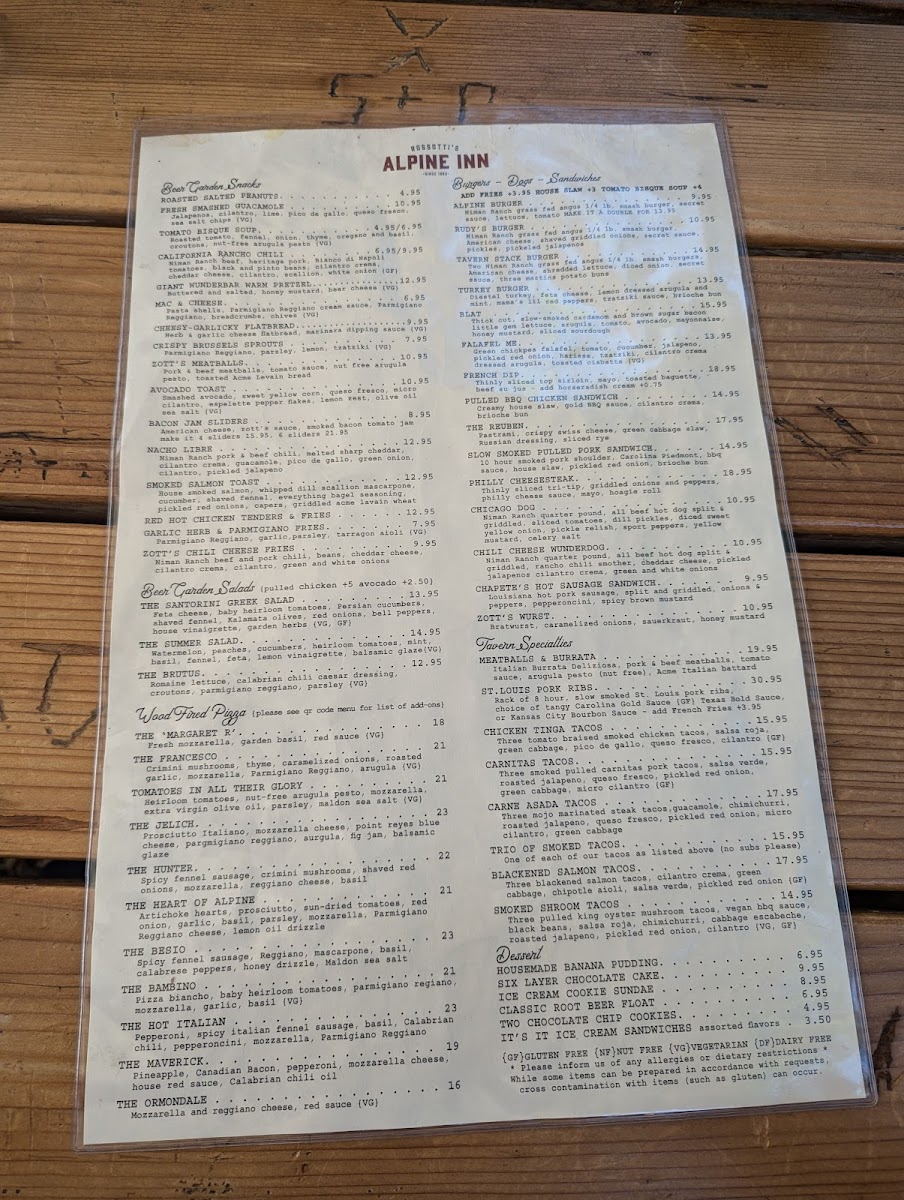 S + P
ROSSOTTI'S
ALPINE INN
-SINCE 1852-
Beer Garden Snacks
ROASTED SALTED PEANUTS. . . . . . . . . . . 4.95
FRESH SMASHED GUACAMOLE . . . . . . . . . . 10.95
Jalapenos, cilantro, lime, pico de gallo, queso fresco,
sea salt chips (VG)
TOMATO BISQUE SOUP. . . . . . . . . . . 4.95/6.95
Roasted tomato, fennel, onion, thyme, oregano and basil,
croutons, nut-free arugula pesto (VG)
CALIFORNIA RANCHO CHILI . . . . . . . . 6.95/9.95
Niman Ranch beef, heritage pork, Bianco di Napoli
tomatoes, black and pinto beans, cilantro crema,
cheddar cheese, cilantro, scallion, white onion (GF)
GIANT WUNDERBAR WARM PRETZEL. . . . . . . . 12.95
Buttered and salted, honey mustard, beer cheese (VG)
MAC & CHEESE. . . . . . . . . . . . . . . . 6.95
Pasta shells, Parmigiano Reggiano cream sauce, Parmigiano
Reggiano, breadcrumbs, chives (VG)
CHEESY-GARLICKY FLATBREAD. . . . . . . . . . 9.95
Herb & garlic cheese flatbread, marinara dipping sauce (VG)
CRISPY BRUSSELS SPROUTS . . . . . . . . . . 7.95
Parmigiano Reggiano, parsley, lemon, tzatziki (VG)
ZOTT'S MEATBALLS. . . . . . . . . . . . . . 10.95
Pork & beef meatballs, tomato sauce, nut free arugula
pesto, toasted Acme Levain bread
AVOCADO TOAST . . . . . . . . . . . . . . . 10.95
Smashed avocado, sweet yellow corn, queso fresco, micro
cilantro, espelette pepper flakes, lemon zest, olive oil
sea salt (VG)
BACON JAM SLIDERS . . . . . . . . . . . . . 8.95
American cheese, zott's sauce, smoked bacon tomato jam
make it 4 sliders 15.95, 6 sliders 21.95
NACHO LIBRE . . . . . . . . . . . . . . . . 12.95
Niman Ranch pork & beef chili, melted sharp cheddar,
cilantro crema, guacamole, pico de gallo, green onion,
cilantro, pickled jalapeno
SMOKED SALMON TOAST . . . . . . . . . . . . 12.95
House smoked salmon, whipped dill scallion mascarpone,
cucumber, shaved fennel, everything bagel seasoning,
pickled red onions, capers, griddled acme lavain wheat
RED HOT CHICKEN TENDERS & FRIES . . . . . . 12.95
GARLIC HERB & PARMIGIANO FRIES. . . . . . . 7.95
Parmigiano Reggiano, garlic,parsley, tarragon aioli (VG)
ZOTT'S CHILI CHEESE FRIES . . . . . . . . . 9.95
Niman Ranch beef and pork chili, beans, cheddar cheese,
cilantro crema, cilantro, green and white onions
Beer Garden Salads (pulled chicken +5 avocado +2.50)
THE SANTORINI GREEK SALAD . . . . . . . . . 13.95
Feta cheese, baby heirloom tomatoes, Persian cucumbers,
shaved fennel, Kalamata olives, red onions, bell peppers,
house vinaigrette, garden herbs (VG, GF)
THE SUMMER SALAD. . . . . . . . . . . . . . 14.95
Watermelon, peaches, cucumbers, heirloom tomatoes, mint,
basil, fennel, feta, lemon vinaigrette, balsamic glaze(VG)
THE BRUTUS. . . . . . . . . . . . . . . . . 12.95
Romaine lettuce, calabrian chili caesar dressing,
croutons, parmigiano reggiano, parsley (VG)
Wood Fired Pizza (please see qr code menu for list of add-ons)
THE 'MARGARET R'. . . . . . . . . . . . . . 18
Fresh mozzarella, garden basil, red sauce (VG)
THE FRANCESCO . . . . . . . . . . . . . . . 21
Crimini mushrooms, thyme, caramelized onions, roasted
garlic, mozzarella, Parmigiano Reggiano, arugula (VG)
TOMATOES IN ALL THEIR GLORY . . . . . . . . 21
Heirloom tomatoes, nut-free arugula pesto, mozzarella,
extra virgin olive oil, parsley, maldon sea salt (VG)
THE JELICH. . . . . . . . . . . . . . . . . 23
Prosciutto Italiano, mozzarella cheese, point reyes blue
cheese, pargmigiano reggiano, aurgula, fig jam, balsamic
glaze
THE HUNTER. . . . . . . . . . . . . . . . . 22
Spicy fennel sausage, crimini mushrooms, shaved red
onions, mozzarella, reggiano cheese, basil
THE HEART OF ALPINE . . . . . . . . . . . . 21
Artichoke hearts, prosciutto, sun-dried tomatoes, red
onion, garlic, basil, parsley, mozzarella, Parmigiano
Reggiano cheese, lemon oil drizzle
THE BESIO . . . . . . . . . . . . . . . . . 23
Spicy fennel sausage, Reggiano, mascarpone, basil,
calabrese peppers, honey drizzle, Maldon sea salt
THE BAMBINO . . . . . . . . . . . . . . . . 21
Pizza biancho, baby heirloom tomatoes, parmigiano regiano,
mozzarella, garlic, basil (VG)
THE HOT ITALIAN . . . . . . . . . . . . . . 23
Pepperoni, spicy italian fennel sausage, basil, Calabrian
chili, pepperoncini, mozzarella, Parmigiano Reggiano
THE MAVERICK. . . . . . . . . . . . . . . . 19
Pineapple, Canadian Bacon, pepperoni, mozzarella cheese,
house red sauce, Calabrian chili oil
THE ORMONDALE . . . . . . . . . . . . . . . 16
Mozzarella and reggiano cheese, red sauce (VG)
Burgers - Dogs - Sandwiches
ADD FRIES +3.95 HOUSE SLAW +3 TOMATO BISQUE SOUP +4
ALPINE BURGER . . . . . . . . . . . . . . . 9.95
Niman Ranch grass fed angus 1/4 lb. smash burger, secret
sauce, lettuce, tomato MAKE IT A DOUBLE FOR 13.95
RUDY'S BURGER . . . . . . . . . . . . . . . 10.95
Niman Ranch grass fed angus 1/4 lb. smash burger,
American cheese, shaved griddled onions, secret sauce,
pickles, pickeled jalapenos
TAVERN STACK BURGER . . . . . . . . . . . . 14.95
Two Niman Ranch grass fed angus 1/4 lb. smash burgers,
American cheese, shredded lettuce, diced onion, secret
sauce, three martins potato buns
TURKEY BURGER . . . . . . . . . . . . . . . 13.95
Diestel turkey, feta cheese, lemon dressed arugula and
mint, mama's lil red peppers, tzatziki sauce, brioche bun
BLAT . . . . . . . . . . . . . . . . . . . 15.95
Thick cut, slow-smoked cardamom and brown sugar bacon
little gem lettuce, arugula, tomato, avocado, mayonnaise,
honey mustard, sliced sourdough
FALAFEL ME. . . . . . . . . . . . . . . . . 13.95
Green chickpea falafel, tomato, cucumber, jalapeno,
pickled red onion, harissa, tzatziki, cilantro crema
dressed arugula, toasted ciabatta (VG)
FRENCH DIP. . . . . . . . . . . . . . . . . 18.95
Thinly sliced top sirloin, mayo, toasted baguette,
beef au jus - add horseradish cream +0.75
PULLED BBQ CHICKEN SANDWICH . . . . . . . . 14.95
Creamy house slaw, gold BBQ sauce, cilantro crema,
brioche bun
THE REUBEN. . . . . . . . . . . . . . . . . 17.95
Pastrami, crispy swiss cheese, green cabbage slaw,
Russian dressing, sliced rye
SLOW SMOKED PULLED PORK SANDWICH. . . . . . 14.95
10 hour smoked pork shoulder, Carolina Piedmont, bbq
sauce, house slaw, pickled red onion, brioche bun
PHILLY CHEESESTEAK. . . . . . . . . . . . . 18.95
Thinly sliced tri-tip, griddled onions and peppers,
philly cheese sauce, mayo, hoagie roll
CHICAGO DOG . . . . . . . . . . . . . . . . 10.95
Niman Ranch quarter pound, all beef hot dog split &
griddled, sliced tomatoes, dill pickles, diced sweet
yellow onion, pickle relish, sport peppers, yellow
mustard, celery salt
CHILI CHEESE WUNDERDOG. . . . . . . . . . . 10.95
Niman Ranch quarter pound, all beef hot dog split &
griddled, rancho chili smother, cheddar cheese, pickled
jalapenos cilantro crema, green and white onions
CHAPETE'S HOT SAUSAGE SANDWICH. . . . . . . 9.95
Louisiana hot pork sausage, split and griddled, onions &
peppers, pepperoncini, spicy brown mustard
ZOTT'S WURST. . . . . . . . . . . . . . . . 10.95
Bratwurst, caramelized onions, sauerkraut, honey mustard
Tavern Specialties
MEATBALLS & BURRATA . . . . . . . . . . . . 19.95
Italian Burrata Deliziosa, pork & beef meatballs, tomato
sauce, arugula pesto (nut free), Acme Italian battard
ST.LOUIS PORK RIBS. . . . . . . . . . . . . 30.95
Rack of 8 hour, slow smoked St. Louis pork ribs,
choice of tangy Carolina Gold Sauce (GF) Texas Bold Sauce,
or Kansas City Bourbon Sauce - add French Fries +3.95
CHICKEN TINGA TACOS . . . . . . . . . . . . 15.95
Three tomato braised smoked chicken tacos, salsa roja,
green cabbage, pico de gallo, queso fresco, cilantro (GF)
CARNITAS TACOS. . . . . . . . . . . . . . . 15.95
Three smoked pulled carnitas pork tacos, salsa verde,
roasted jalapeno, queso fresco, pickled red onion,
green cabbage, micro cilantro (GF)
CARNE ASADA TACOS . . . . . . . . . . . . . 17.95
Three mojo marinated steak tacos,guacamole, chimichurri,
roasted jalapeno, queso fresco, pickled red onion, micro
cilantro, green cabbage
TRIO OF SMOKED TACOS. . . . . . . . . . . . 15.95
One of each of our tacos as listed above (no subs please)
BLACKENED SALMON TACOS. . . . . . . . . . . 17.95
Three blackened salmon tacos, cilantro crema, green
cabbage, chipotle aioli, salsa verde, pickled red onion (GF)
SMOKED SHROOM TACOS . . . . . . . . . . . . 14.95
Three pulled king oyster mushroom tacos, vegan bbq sauce,
black beans, salsa roja, chimichurri, cabbage escabeche,
roasted jalapeno, pickled red onion, cilantro (VG, GF)
Dessert
HOUSEMADE BANANA PUDDING. . . . . . . . . . 6.95
SIX LAYER CHOCOLATE CAKE. . . . . . . . . . 9.95
ICE CREAM COOKIE SUNDAE . . . . . . . . . . 8.95
CLASSIC ROOT BEER FLOAT . . . . . . . . . . 6.95
TWO CHOCOLATE CHIP COOKIES. . . . . . . . . 4.95
IT'S IT ICE CREAM SANDWICHES assorted flavors . 3.50
{GF}GLUTEN FREE {NF}NUT FREE {VG}VEGETARIAN {DF}DAIRY FREE
* Please inform us of any allergies or dietary restrictions *
While some items can be prepared in accordance with requests,
cross contamination with items (such as gluten) can occur.